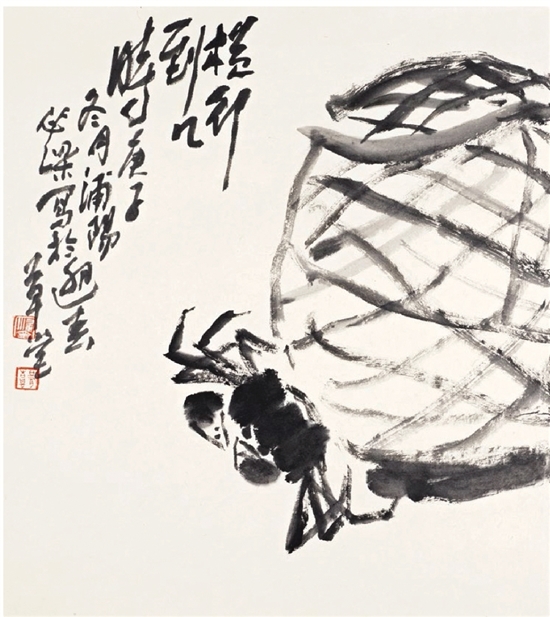 横行
到几
时 庚子
冬月浦阳
心梁写於迎春
草堂